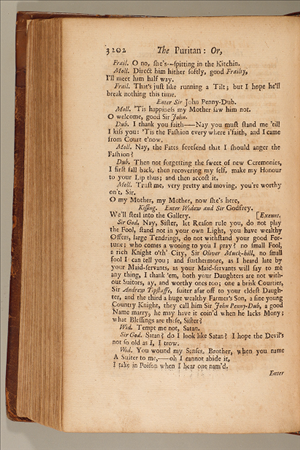 3202 The Puritan: Or,
Frail. O no, she's—spitting in the Kitchin.
Moll. Direct him hither softly, good Frailty,
I'll meet him half way.
Frail. That's just like running a Tilt; but I hope he'll
break nothing this time.
Enter Sir John Penny-Dub.
Moll. 'Tis happiness my Mother saw him not.
O welcome, good Sir John.
Dub. I thank you faith—Nay you must stand me 'till
I kiss you: 'Tis the Fashion every where i'faith, and I came
from Court e'now.
Moll. Nay, the Fates forefend that I should anger the
Fashion!
Dub. Then not forgetting the sweet of new Ceremonies,
I first fall back, then recovering my self, make my Honour
to your Lip thus; and then accost it.
Moll. Trust me, very pretty and moving, you're worthy
on't, Sir.
O my Mother, my Mother, now she's here,
Kissing. Enter Widow and Sir Godfrey.
We'll steal into the Gallery. [Exeunt.
Sir God. Nay, Sister, let Reason rule you, do not play
the Fool, stand not in your own Light, you have wealthy
Offers, large Tendrings, do not withstand your good For-
tune; who comes a wooing to you I pray? no small Fool,
a rich Knight o'th' City, Sir Oliver Muck-hill, no small
fool I can tell you; and furthermore, as I heard late by
your Maid-servants, as your Maid-servants will say to me
any thing, I thank 'em, both your Daughters are not with-
out Suitors, ay, and worthy ones too; one a brisk Courtier,
Sir Andrew Tipstaffe, suiter afar off to your eldest Daugh-
ter, and the third a huge wealthy Farmer's Son, a fine young
Country Knight, they call him Sir John Penny-Dub, a good
Name marry, he may have it coin'd when he lacks Mony;
what Blessings are these, Sister?
Wid. Tempt me not, Satan.
Sir God. Satan? do I look like Satan? I hope the Devil's
not so old as I, I trow.
Wid. You wound my Senses, Brother, when you name
A Suiter to me,—oh I cannot abide it,
I take in Poison when I hear one nam'd.
Enter